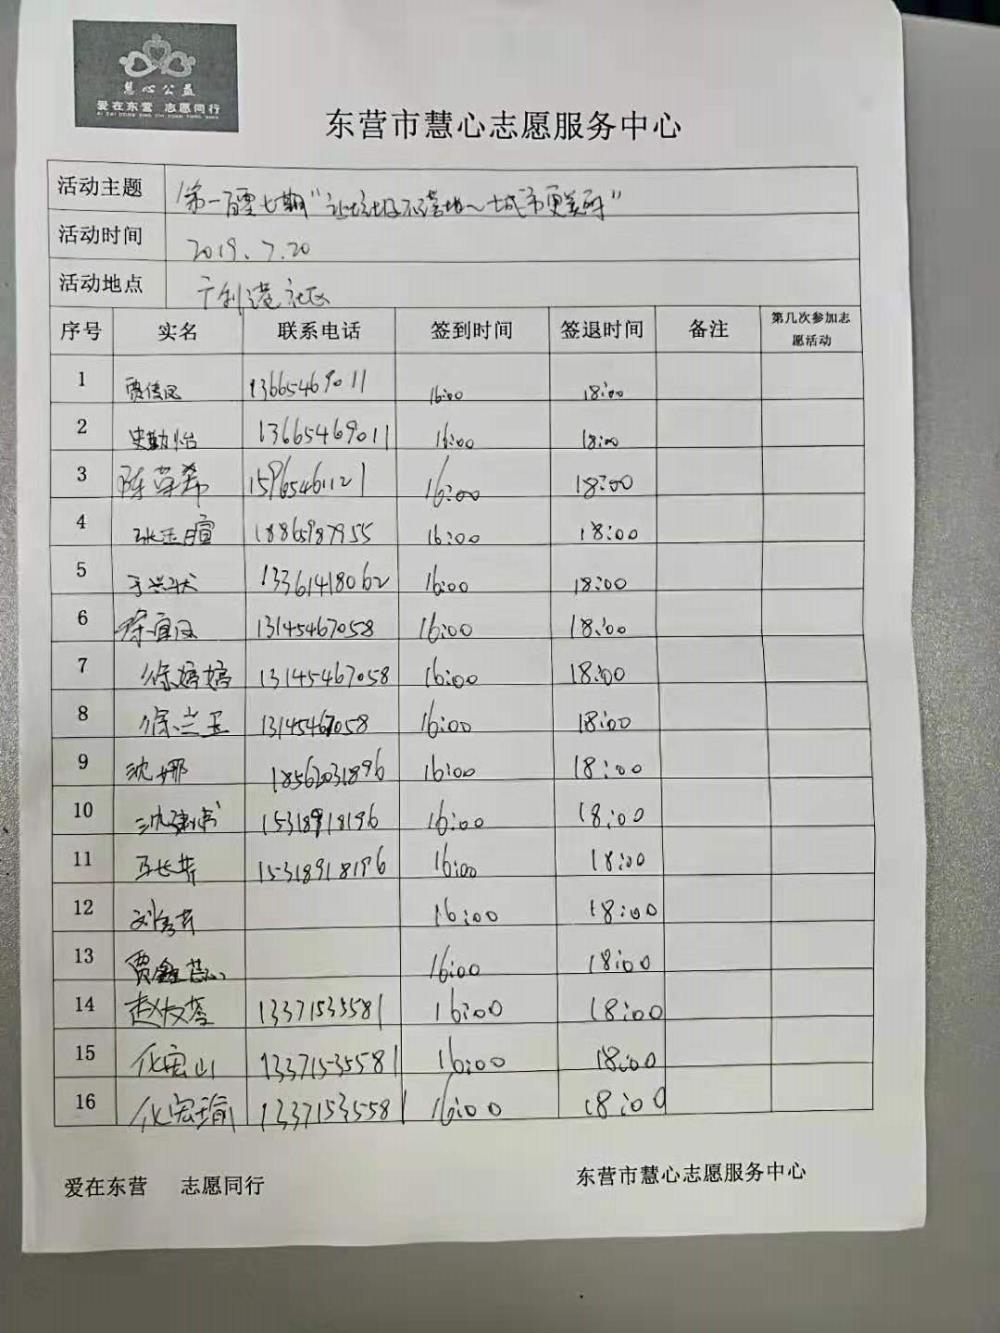 慧心公益
爱在东营 志愿同行
东营市慧心志愿服务中心
活动主题 第一百零七期“让垃圾不落地~城市更美丽”
活动时间 2019.7.20
活动地点 广利港社区
序号 实名 联系电话 签到时间 签退时间 备注 第几次参加志愿活动
1 13665469011 16:00 18:00
2 13665469011 16:00 18:00
3 陈荣希 15965461121 16:00 18:00
4 18865987955 16:00 18:00
5 13361418062 16:00 18:00
6 13145467058 16:00 18:00
7 徐婷婷 13145467058 16:00 18:00
8 徐兰玉 13145467058 16:00 18:00
9 沈娜 18562031896 16:00 18:00
10 15318918196 16:00 18:00
11 15318918196 16:00 18:00
12 16:00 18:00
13 16:00 18:00
14 13371535581 16:00 18:00
15 化宏山 13371535581 16:00 18:00
16 化宏瑜 13371535581 16:00 18:00
爱在东营 志愿同行 东营市慧心志愿服务中心